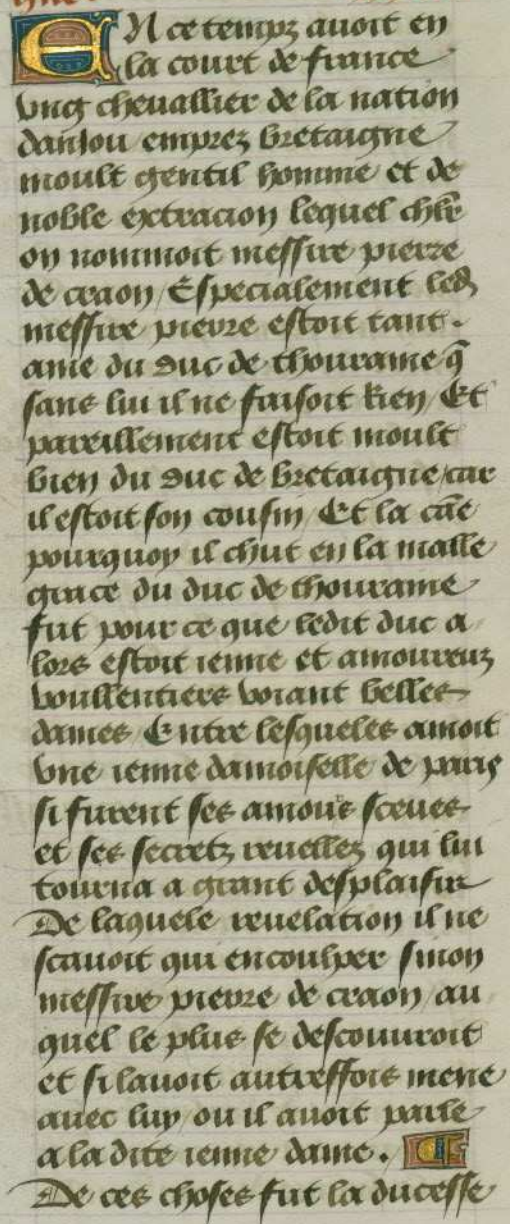 EN ce tempz auoit en
la court de france
vng cheuallier de la nation
daniou emprez bretaigne
moult gentil homme et de
noble extracion lequel chlr̄
on nommoit messire pierre
de craon / Especialement led
messire pierre estoit tant
ame du duc de thouraine q̄
sans lui il ne faisoit Rien / Et
pareillement estoit moult
bien du duc de bretaigne / car
il estoit son cousin / Et la cāe
pourquoy il chut en la malle
grace du duc de thouraine
fut pour ce que ledit duc a
lors estoit ienne et amoureux
voullentiers voiant belles
dames / Entre lesqueles amoit
vne ienne damoiselle de paris
si furent ses amours sceues
et ses secretz reuellez qui lui
tourna a grant desplaisir
De laquele reuelation il ne
scauoit qui encoulper sinon
messire pierre de craon / au
quel le plus se descouuroit
et si lauoit autreffois mene
auec luy / ou il auoit parle
a la dite ienne dame.
De ces choses fut la ducesse